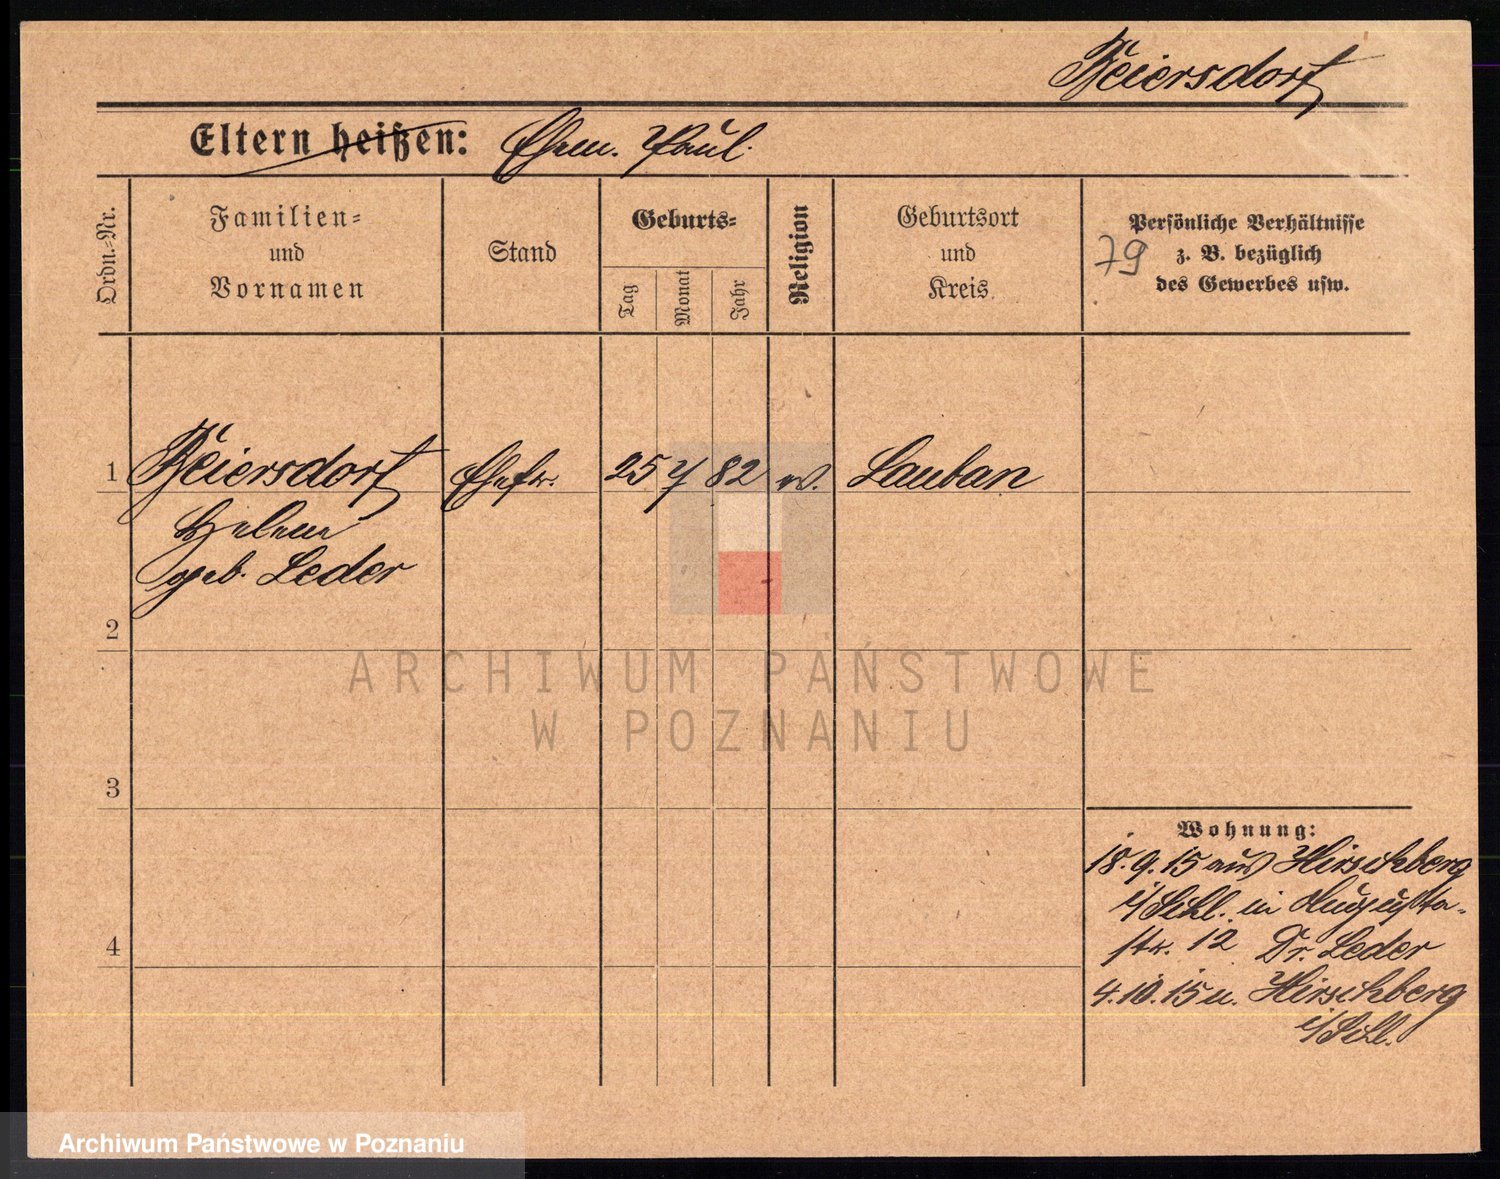 Beiersdorf
Eltern heißen: Ehem. Paul.
Ordn.-Nr.
Familien-
und
Vornamen
Stand
Geburts-
Tag
Monat
Jahr
Religion
Geburtsort
und
Kreis.
Persönliche Verhältnisse
z. B. bezüglich
des Gewerbes usw.
79
1 Beiersdorf Ehefr. 25 7 82 Lauban
Helene
geb. Leder
2
ARCHIWUM PAŃSTWOWE
W POZNANIU
3
Wohnung:
18.9.15 aus Hirschberg
i/Schl. in Augusta-
str. 12 Dr. Leder
4
4.10.15 n. Hirschberg
i/Schl.
Archiwum Państwowe w Poznaniu